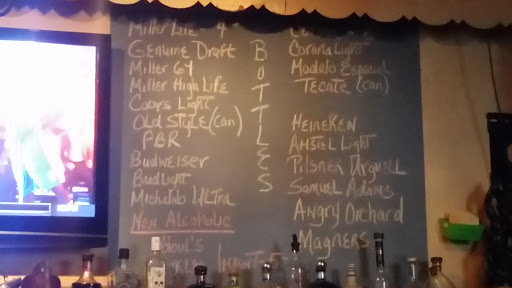 Miller Lite - 4
Genuine Draft
Miller 64
Miller High Life
Coors Light
Old Style (can)
PBR
Budweiser
Bud Light
Michelob Ultra
Non Alcoholic
BOTTLES
Corona Light
Modelo Especial
Tecate (can)
Heineken
Amstel Light
Pilsner Urquell
Samuel Adams
Angry Orchard
Magners